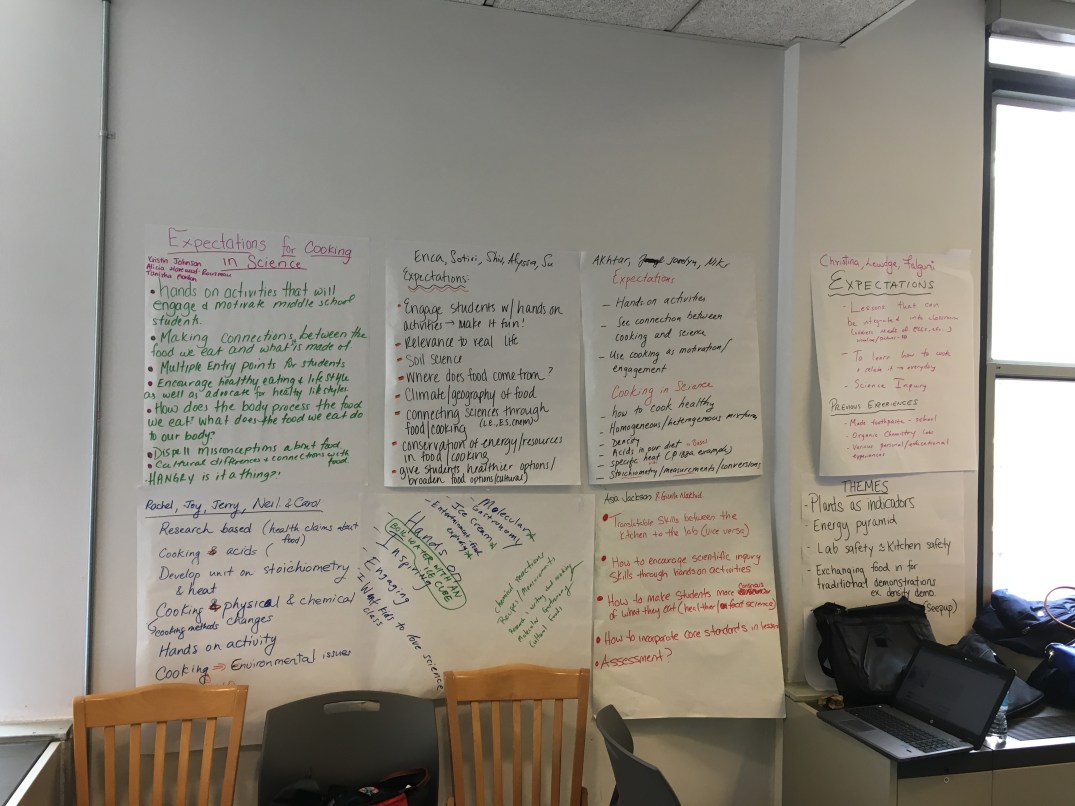 Expectations for Cooking
in Science
Kristin Johnson
Alicia
Tanisha
• hands on activities that will
engage & motivate middle school
students.
• Making connections between the
food we eat and what is made of.
• Multiple Entry points for students
• Encourage healthy eating & lifestyle
as well as advocate for healthy lifestyles.
• How does the body process the food
we eat? What does the food we eat do
to our body?
• Dispell misconceptions about food
• Cultural differences & connections with
food.
• HANGRY is it a thing?
Erica, Sotiri, Shiv, Su
Expectations:
Engage students w/ hands on
activities → make it fun!
Relevance to real life
Soil science
Where does food come from?
Climate/geography of food
connecting sciences through
food/cooking (L.E., ES, chem)
conservation of energy/resources
in food/cooking
give students healthier options/
broaden food options (cultural)
Akhtar, Jordyn, Mik,
Expectations
- Hands on activities
- See connection between
cooking and science
- Use cooking as motivation/
engagement
Cooking in Science
- how to cook healthy
- Homogeneous/heterogenous mixtures
- Density
- Acids in our diet
- specific heat (pizza example)
- Stoichiometry/measurements/conversions
Christina, Falguni
EXPECTATIONS
- Lessons that can
be integrated into classroom
- To learn how to
relate it to everyday
- Science Inquiry
PREVIOUS EXPERIENCES
- Made toothpaste - school
- Organic Chemistry lab
- Various personal/educational
experiences
Rachel, Joy, Jerry, Neil & Carol
Research based (health claims about
food)
Cooking & acids (
Develop unit on stoichiometry
& heat
Cooking & physical & chemical
changes
cooking methods
Hands on activity
Cooking ⇒ Environmental issues
- Molecular
Gastronomy
- Ice cream
- Entertainment-food
exploding
Hands on
BOIL WATER WITH AN
ICE CUBE
- Inspiring
- Engaging
- I Want kids to love science
class
Chemical reactions
Recipes/Measurements
Cultural Foods
Asa Jackson & Nakhid
• Translatable Skills between the
kitchen to the lab (vice versa)
• How to encourage scientific inquiry
Skills through hands on activities
• How to make Students more conscious
of what they eat (healthier/food science)
• How to incorporate core standards in lesson
• Assessment?
THEMES
- Plants as indicators
- Energy pyramid
- Lab safety & Kitchen safety
- Exchanging food in for
traditional demonstrations
ex. density demo.
(seepup)